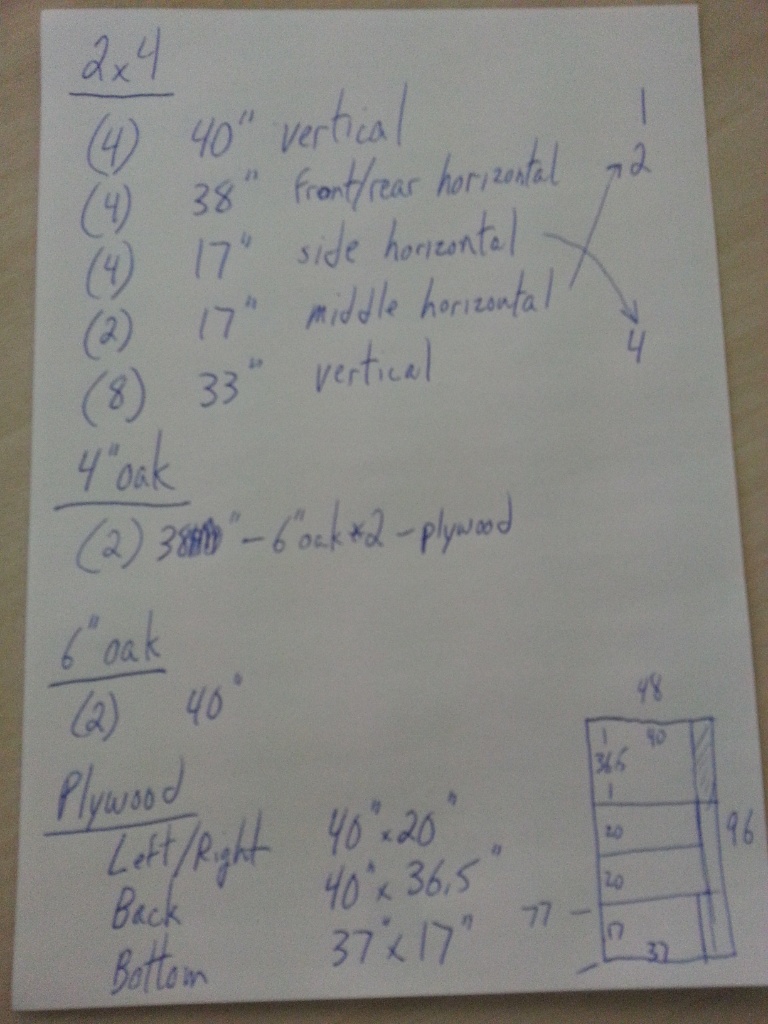 2x4
(4) 40" vertical 1
(4) 38" front/rear horizontal 2
(4) 17" side horizontal
(2) 17" middle horizontal 4
(8) 33" vertical
4" oak
(2) 38" - 6" oak*2 - plywood
6" oak
(2) 40"
Plywood
Left/Right 40" x 20"
Back 40" x 36.5"
Bottom 37" x 17"
48
1 40
36.5
1
20
96
20
77 -
17 37